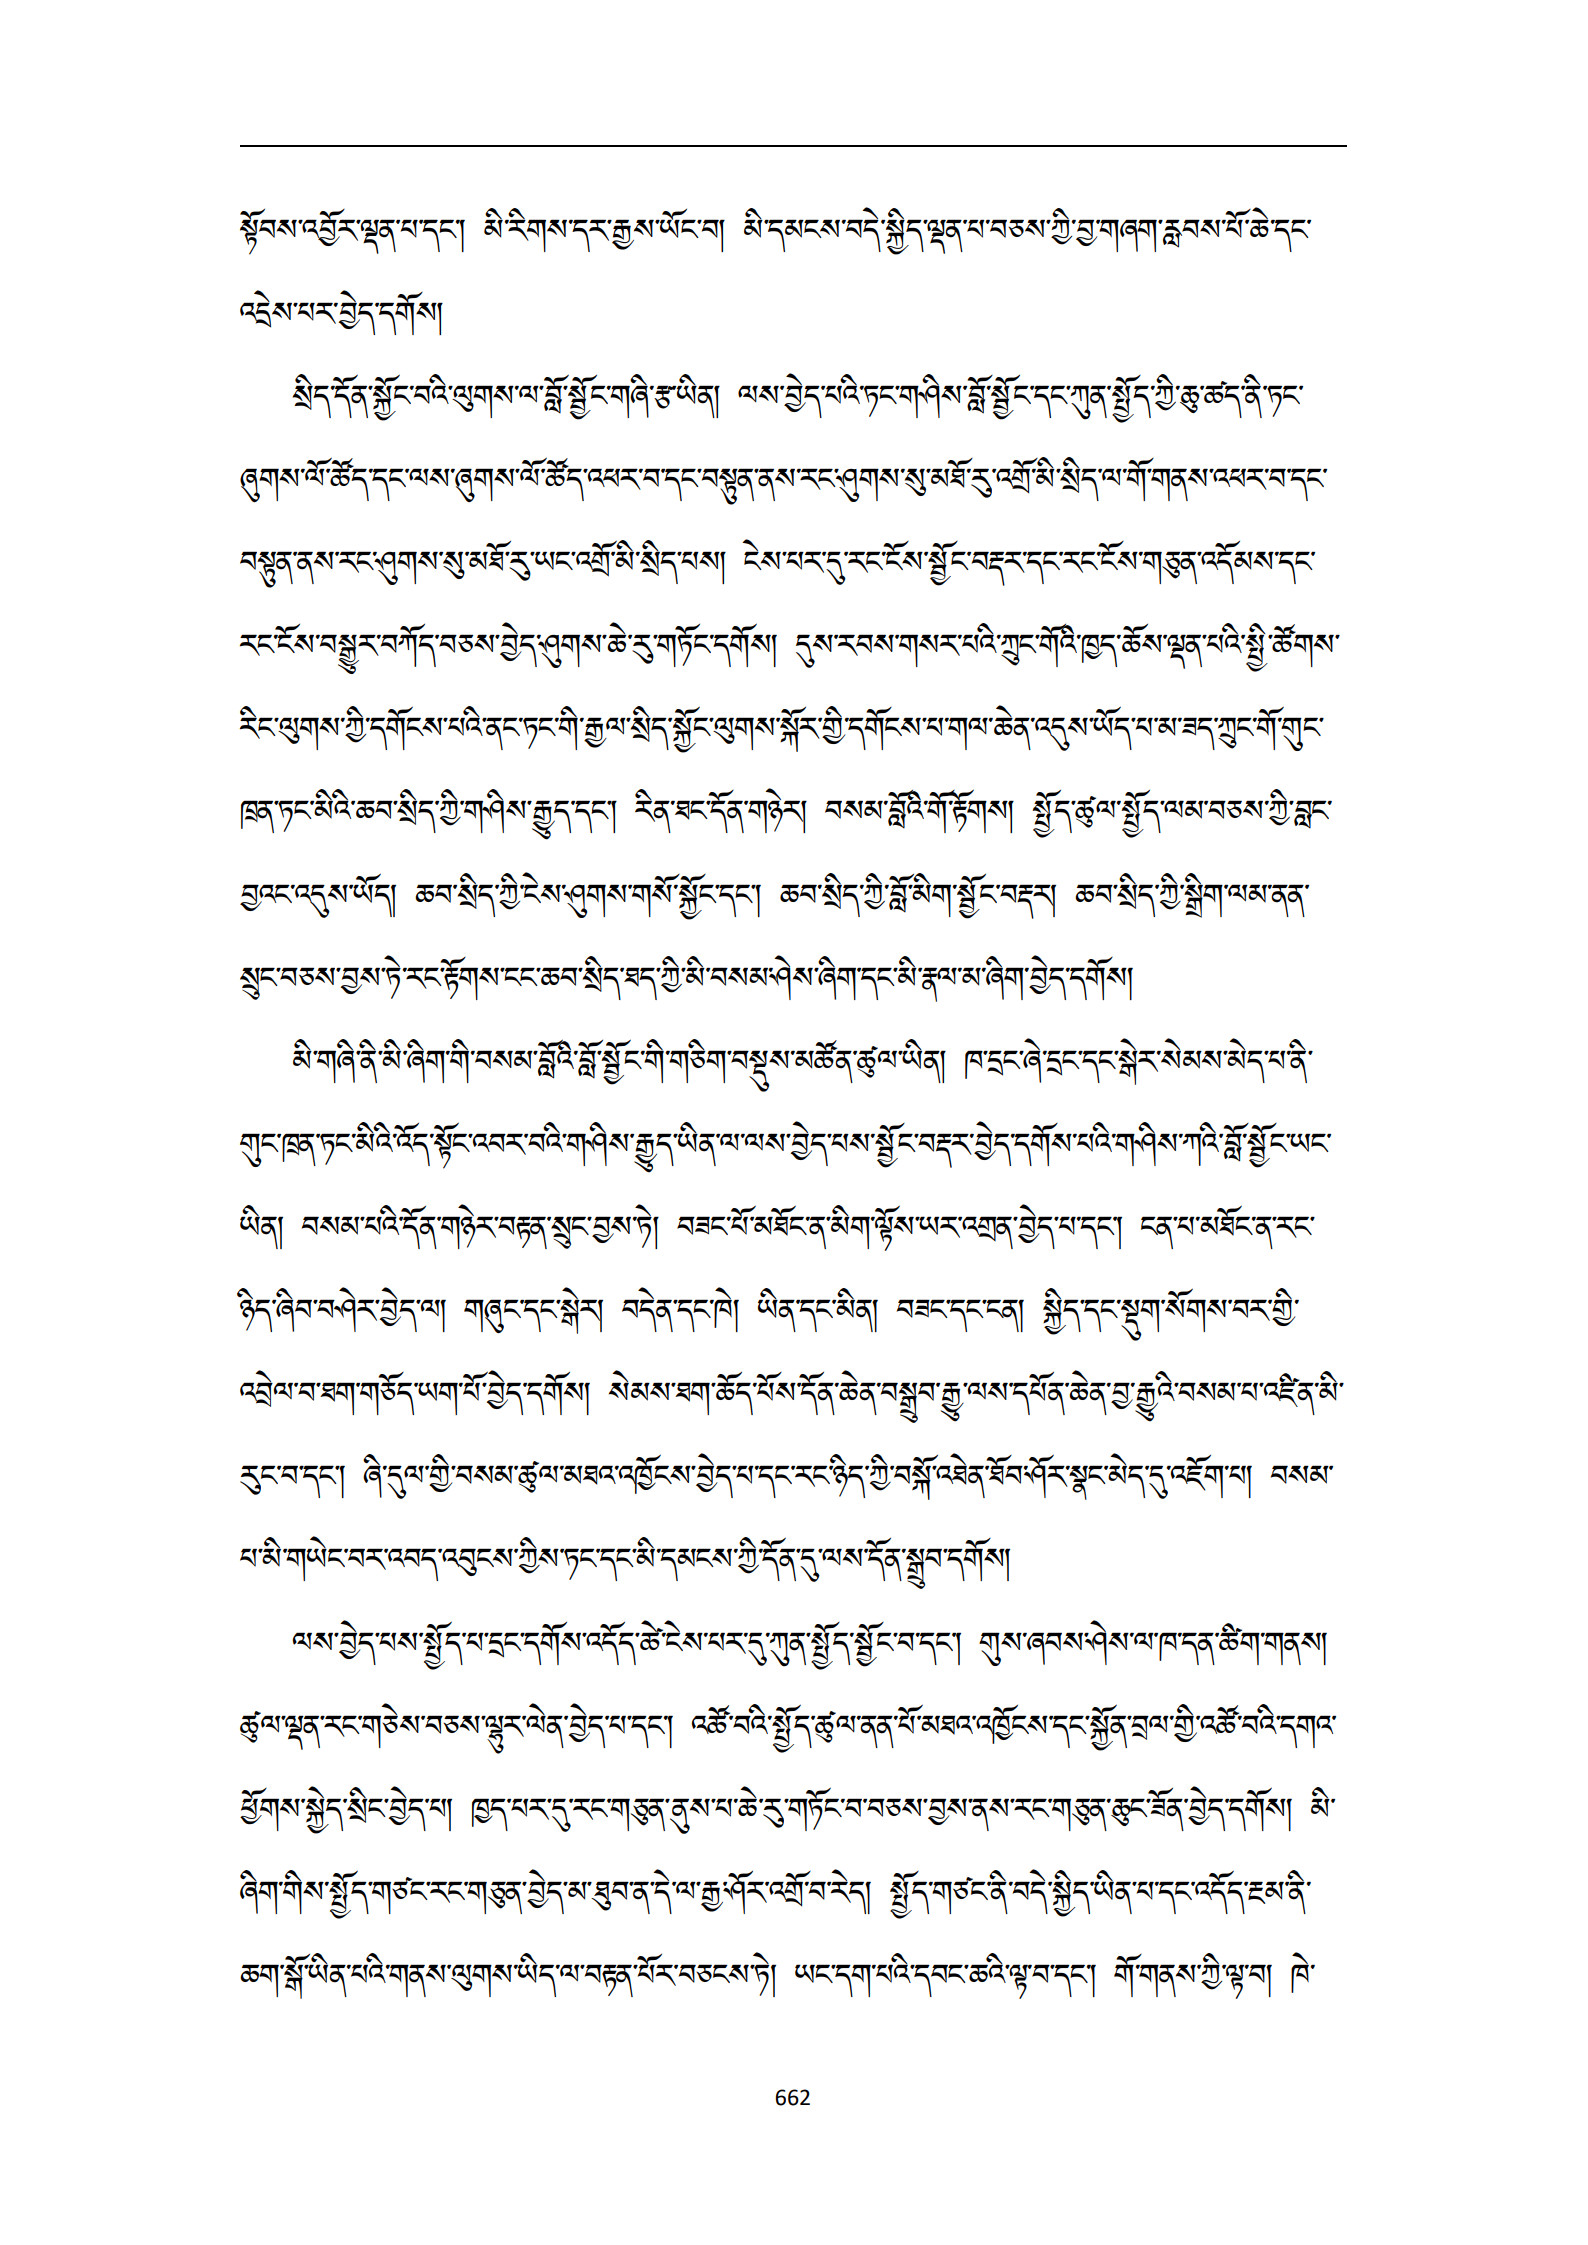 སྟོབས་འབྱོར་ལྡན་པ་དང་། མི་རིགས་དར་རྒྱས་ཡོང་བ། མི་དམངས་བདེ་སྐྱིད་ལྡན་པ་བཅས་ཀྱི་བྱ་གཞག་རླབས་པོ་ཆེ་དང་
འདྲེས་པར་བྱེད་དགོས།
སྲིད་དོན་སྐྱོང་བའི་ལུགས་ལ་བློ་སྦྱོང་གཞི་རྩ་ཡིན། ལས་བྱེད་པའི་ཏང་གཤིས་བློ་སྦྱོང་དང་ཀུན་སྤྱོད་ཀྱི་ཆུ་ཚད་ནི་ཏང་
ཞུགས་ལོ་ཚོད་དང་ལས་ཞུགས་ལོ་ཚོད་འཕར་བ་དང་བསྟུན་ནས་རང་ཤུགས་སུ་མཐོ་རུ་འགྲོ་མི་སྲིད་ལ་གོ་གནས་འཕར་བ་དང་
བསྟུན་ནས་རང་ཤུགས་སུ་མཐོ་རུ་ཡང་འགྲོ་མི་སྲིད་པས། ངེས་པར་དུ་རང་ངོས་སྦྱོང་བརྡར་དང་རང་ངོས་གཅུན་འདོམས་དང་
རང་ངོས་བསྒྱུར་བཀོད་བཅས་བྱེད་ཤུགས་ཆེ་རུ་གཏོང་དགོས། དུས་རབས་གསར་པའི་ཀྲུང་གོའི་ཁྱད་ཆོས་ལྡན་པའི་སྤྱི་ཚོགས་
རིང་ལུགས་ཀྱི་དགོངས་པའི་ནང་ཏང་གི་རྒྱལ་སྲིད་སྐྱོང་ལུགས་སྐོར་གྱི་དགོངས་པ་གལ་ཆེན་འདུས་ཡོད་པ་མ་ཟད་ཀྲུང་གོ་གུང་
ཁྲན་ཏང་མིའི་ཆབ་སྲིད་ཀྱི་གཤིས་རྒྱུད་དང་། རིན་ཐང་དོན་གཉེར། བསམ་བློའི་གོ་རྟོགས། སྤྱོད་ཚུལ་སྤྱོད་ལམ་བཅས་ཀྱི་བླང་
བྱའང་འདུས་ཡོད། ཆབ་སྲིད་ཀྱི་ངེས་ཤུགས་གསོ་སྐྱོང་དང་། ཆབ་སྲིད་ཀྱི་བློ་མིག་སྦྱོང་བརྡར། ཆབ་སྲིད་ཀྱི་སྒྲིག་ལམ་ནན་
སྲུང་བཅས་བྱས་ཏེ་རང་རྟོགས་ངང་ཆབ་སྲིད་ཐད་ཀྱི་མི་བསམ་ཤེས་ཞིག་དང་མི་རྣལ་མ་ཞིག་བྱེད་དགོས།
མི་གཞི་ནི་མི་ཞིག་གི་བསམ་བློའི་བློ་སྦྱོང་གི་གཅིག་བསྡུས་མཚོན་ཚུལ་ཡིན། ཁ་དྲང་ཞེ་དྲང་དང་སྒེར་སེམས་མེད་པ་ནི་
གུང་ཁྲན་ཏང་མིའི་འོད་སྟོང་འབར་བའི་གཤིས་རྒྱུད་ཡིན་ལ་ལས་བྱེད་པས་སྦྱོང་བརྡར་བྱེད་དགོས་པའི་གཤིས་ཀའི་བློ་སྦྱོང་ཡང་
ཡིན། བསམ་པའི་དོན་གཉེར་བརྟན་སྲུང་བྱས་ཏེ། བཟང་པོ་མཐོང་ན་མིག་ལྟོས་ཡར་འགྲན་བྱེད་པ་དང་། ངན་པ་མཐོང་ན་རང་
ཉིད་ཞིབ་བཤེར་བྱེད་ལ། གཞུང་དང་སྒེར། བདེན་དང་ཁེ། ཡིན་དང་མིན། བཟང་དང་ངན། སྐྱིད་དང་སྡུག་སོགས་བར་གྱི་
འབྲེལ་བ་ཐག་གཅོད་ཡག་པོ་བྱེད་དགོས། སེམས་ཐག་ཆོད་པོས་དོན་ཆེན་བསྒྲུབ་རྒྱུ་ལས་དཔོན་ཆེན་བྱ་རྒྱུའི་བསམ་པ་འཛིན་མི་
རུང་བ་དང་། ཞི་དུལ་གྱི་བསམ་ཚུལ་མཐའ་འཁྱོངས་བྱེད་པ་དང་རང་ཉིད་ཀྱི་བསྐོ་འཐེན་ཐོབ་ཤོར་སྣང་མེད་དུ་འཇོག་པ། བསམ་
པ་མི་གཡེང་བར་འབད་འབུངས་ཀྱིས་ཏང་དང་མི་དམངས་ཀྱི་དོན་དུ་ལས་དོན་སྒྲུབ་དགོས།
ལས་བྱེད་པས་སྤྱོད་པ་དྲང་དགོས་འདོད་ཚེ་ངེས་པར་དུ་ཀུན་སྤྱོད་སྦྱོང་བ་དང་། གུས་ཞབས་ཤེས་ལ་ཁ་དན་ཚིག་གནས།
ཚུལ་ལྡན་རང་གཅེས་བཅས་ལྷུར་ལེན་བྱེད་པ་དང་། འཚོ་བའི་སྤྱོད་ཚུལ་ནན་པོ་མཐའ་འཁྱོངས་དང་སྐྱོན་བྲལ་གྱི་འཚོ་བའི་དགའ་
ཕྱོགས་སྐྱེད་སྲིང་བྱེད་པ། ཁྱད་པར་དུ་རང་གཅུན་ནུས་པ་ཆེ་རུ་གཏོང་བ་བཅས་བྱས་ནས་རང་གཅུན་ཆུང་ཟོན་བྱེད་དགོས། མི་
ཞིག་གིས་སྤྱོད་གཙང་རང་གཅུན་བྱེད་མ་ཐུབ་ན་དེ་ལ་རྒྱ་ཤོར་འགྲོ་བ་རེད། སྤྱོད་གཙང་ནི་བདེ་སྐྱིད་ཡིན་པ་དང་འདོད་རྔམ་ནི་
ཆག་སྒོ་ཡིན་པའི་གནས་ལུགས་ཡིད་ལ་བརྟན་པོར་བཅངས་ཏེ། ཡང་དག་པའི་དབང་ཆའི་ལྟ་བ་དང་། གོ་གནས་ཀྱི་ལྟ་བ། ཁེ་
662